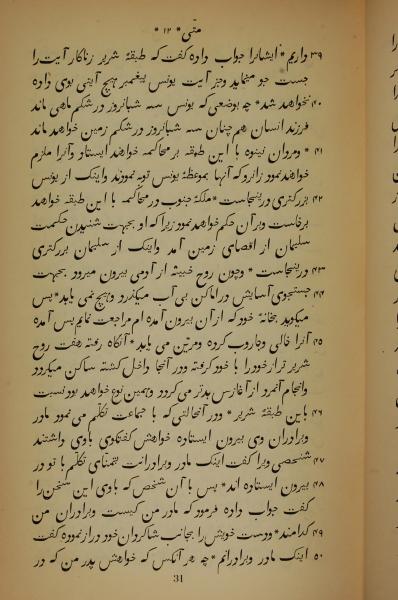 متی * ۱۲ *
۳۹ داریم * ایشانرا جواب داده گفت که طبقهٔ شریر زناکار آیت را
جست جو مینماید و جز آیت یونس پیغمبر هیچ آیتی بوی داده
۴۰ نخواهد شد * چه بوضعی که یونس سه شبانروز در شکم ماهی ماند
فرزند انسان هم چنان سه شبانروز در شکم زمین خواهد ماند
۴۱ * و مردان نینوه با این طبقه بر محاکمه خواهند ایستاد و آنرا ملزم
خواهند نمود زانرو که آنها بموعظهٔ یونس توبه نمودند و اینک از یونس
۴۲ بزرگتری در اینجاست * ملکهٔ جنوب در محاکمه با این طبقه خواهد
برخاست و بر آن حکم خواهد نمود زیرا که او بجهت شنیدن حکمت
سلیمان از اقصای زمین آمد و اینک از سلیمان بزرگتری
۴۳ در اینجاست * و چون روح خبیثه از آدمی بیرون میرود بجهت
۴۴ جستجوی آسایش در اماکن بی آب میگردد و هیچ نمی یابد * پس
میگوید بخانهٔ خود که از آن بیرون آمده ام مراجعت نمایم پس آمده
۴۵ آنرا خالی و جاروب کرده و مزین می یابد * آنگاه رفته هفت روح
شریر تر از خود را با خود گرفته و در آنجا داخل گشته ساکن میگردد
و انجام آنمرد از آغازش بدتر می گردد و بهمین نوع خواهد بود نسبت
۴۶ باین طبقهٔ شریر * و در آنحالتی که با جماعت تکلم می نمود مادر
و برادران وی بیرون ایستاده خواهش گفتگوی باوی داشتند
۴۷ * شخصی ویرا گفت اینک مادر و برادرانت بتمنای تکلم با تو در
۴۸ بیرون ایستاده اند * پس با آن شخص که باوی این سخن را
گفت جواب داده فرمود که مادر من کیست و برادران من
۴۹ کدامند * و دست خویش را بجانب شاگردان خود دراز نموده گفت
۵۰ اینک مادر و برادرانم * چه هر آنکس که خواهش پدر من که در
31